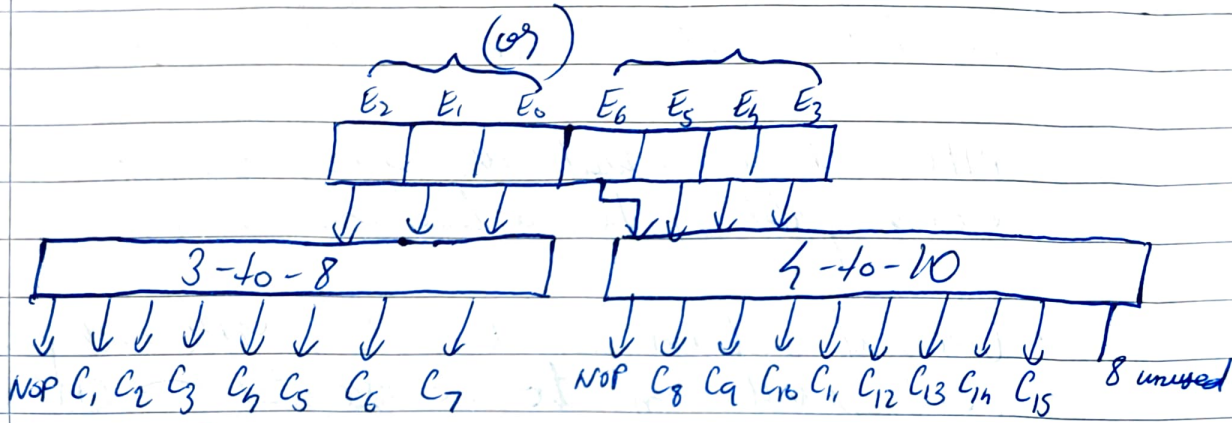 (or)
E₂ E₁ E₀ E₆ E₅ E₄ E₃
3-to-8 4-to-10
NOP C₁ C₂ C₃ C₄ C₅ C₆ C₇ NOP C₈ C₉ C₁₀ C₁₁ C₁₂ C₁₃ C₁₄ C₁₅ 8 unused